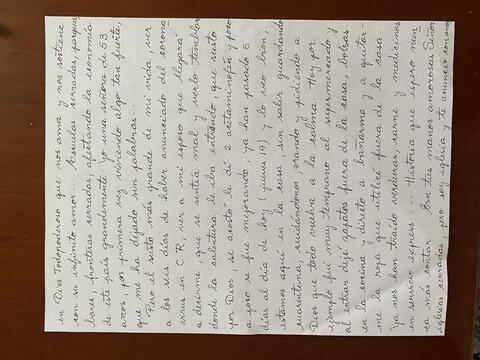 en Dios Todopoderoso que nos ama y nos sostiene
con su infinito amor... Escuelas cerradas, parques
llaves, fronteras cerradas, afectando la economía
de este país grandemente. Yo una señora de 53
años por primera vez viviendo algo tan fuerte,
que me ha dejado sin palabras.
Pero el susto más grande de mi vida, ver
a los seis días de haber anunciado del corona
virus en C.R, ver a mi esposo que llegará
a decirme que se sentía mal y verlo temblar
donde la calentura le iba entrando, que susto
por Dios, se acostó le di 2 acetaminofén y poco
a poco se fue mejorando ya han pasado 5
días al día de hoy (jueves 19) y lo veo bien,
estamos aquí en la casa, sin salir guardando
cuarentena, cuidándonos, orando y pidiendo a
Dios que todo vuelva a la calma. Hoy por
ejemplo fui muy temprano al supermercado y
al entrar dejé zapatos fuera de la casa, bolsas
en la cocina y directo a bañarme y a quitar-
me la ropa que utilicé fuera de la casa.
Ya nos han traído verduras, carne y medicinas
en servicio express... Historia que espero nun
ca más contar. En tus manos amorosas Señor
iglesias cerradas, pero soy iglesia y te anuncio